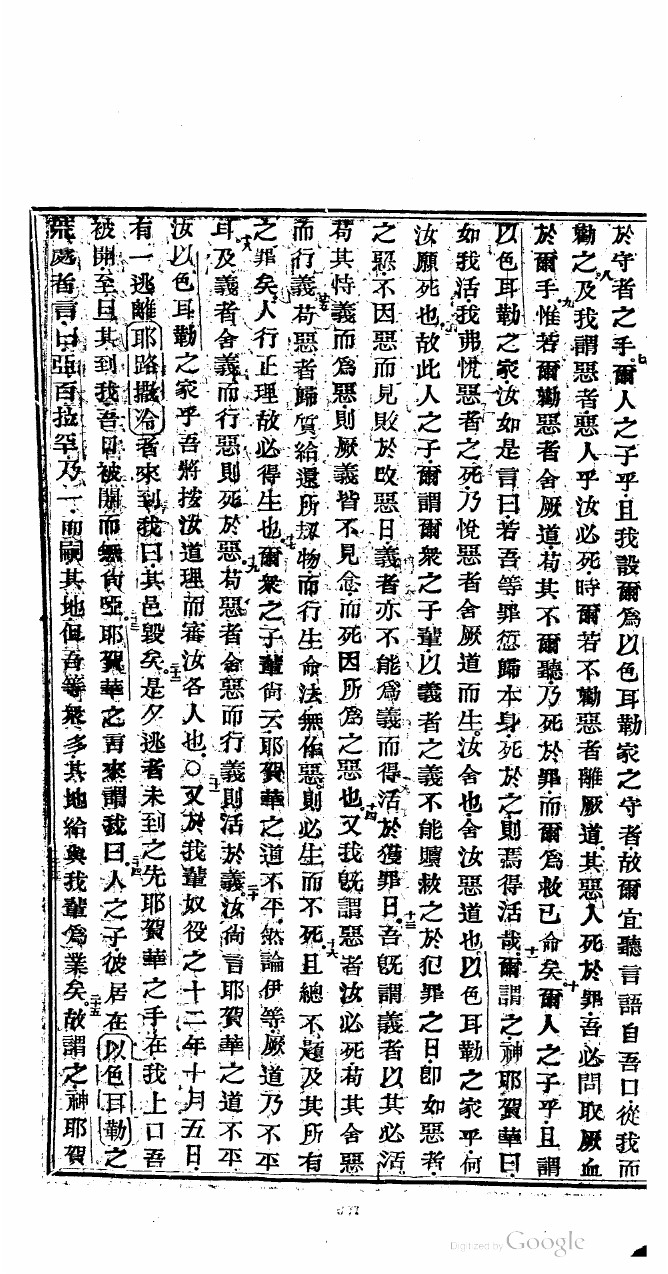 於守者之手爾人之子乎且我設爾爲以色耳勒家之守者故爾宜聽言語自吾口從我而
勸之及我謂惡者惡人乎汝必死時爾若不勸惡者離厥道其惡人死於罪吾必問取厥血
於爾手惟若爾勸惡者舍厥道苟其不爾聽乃死於罪而爾爲救己命矣爾人之子乎且謂
以色耳勒之家汝如是言曰若吾等罪愆歸本身死於之則焉得活哉爾謂之神耶賀華曰
如我活我弗悅惡者之死乃悅惡者舍厥道而生汝舍也舍汝惡道也以色耳勒之家乎何
汝願死也故此人之子爾謂爾衆之子輩以義者之義不能贖救之於犯罪之日卽如惡者
之惡不因惡而見敗於改惡日義者亦不能爲義而得活於獲罪日吾旣謂義者以其必活
苟其恃義而爲惡則厥義皆不見念而死因所爲之惡也又我旣謂惡者汝必死苟其舍惡
而行義苟惡者歸質給還所刼物而行生命法無作惡則必生而不死且總不題及其所有
之罪矣人行正理故必得生也爾衆之子輩尙云耶賀華之道不平然論伊等厥道乃不平
耳及義者舍義而行惡則死於惡苟惡者舍惡而行義則活於義汝尙言耶賀華之道不平
汝以色耳勒之家乎吾將按汝道理而審汝各人也○又於我輩奴役之十二年十月五日
有一逃離耶路撒冷者來到我曰其邑毀矣是夕逃者未到之先耶賀華之手在我上口吾
被開至旦其到我吾口被開而無尙啞耶賀華之言來謂我曰人之子彼居在以色耳勒之
荒處者言曰亞百拉罕乃一而嗣其地但吾等衆多其地給與我輩爲業矣故謂之神耶賀
Digitized by Google